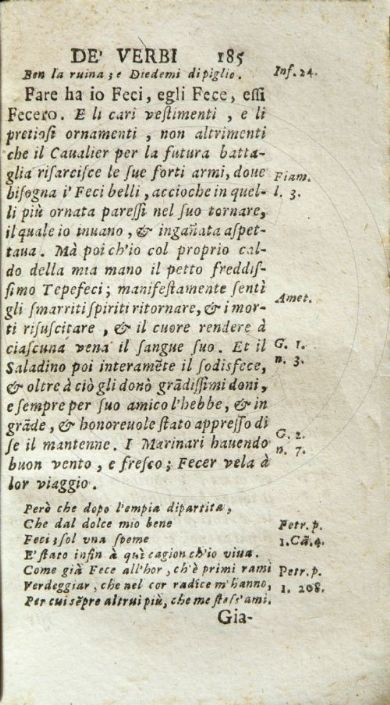 DE' VERBI 185
Ben la ruina; e Diedemi di piglio. Inf. 24.
Fare ha io Feci, egli Fece, essi
Fecero. E li cari vestimenti, e li
pretiosi ornamenti, non altrimenti
che il Caualier per la futura batta-
glia risarcisce le sue forti armi, doue Fiam.
bisogna i' Feci belli, accioche in quel- l. 3.
li più ornata paressi nel suo tornare,
il quale io inuano, & ingañata aspet-
taua. Mà poi ch'io col proprio cal-
do della mia mano il petto freddis-
simo Tepefeci; manifestamente sentì Amet.
gli smarriti spiriti ritornare, & i mor-
ti risuscitare, & il cuore rendere à
ciascuna vena il sangue suo. Et il G. 1.
Saladino poi interamẽte il sodisfece, n. 3.
& oltre à ciò gli donò grãdissimi doni,
e sempre per suo amico l'hebbe, & in
grãde, & honoreuole stato appresso di G. 2.
se il mantenne. I Marinari hauendo n. 7.
buon vento, e fresco; Fecer vela à
lor viaggio.
Però che dopo l'empia dipartita,
Che dal dolce mio bene Petr. p.
Feci; sol vna speme 1. Cã. 4.
E' stato infin à quì cagion ch'io viua.
Come già Fece all'hor, ch'è primi rami Petr. p.
Verdeggiar, che nel cor radice m'hanno, 1. 208.
Per cui sẽpre altrui più, che me stess'ami.
Gia-